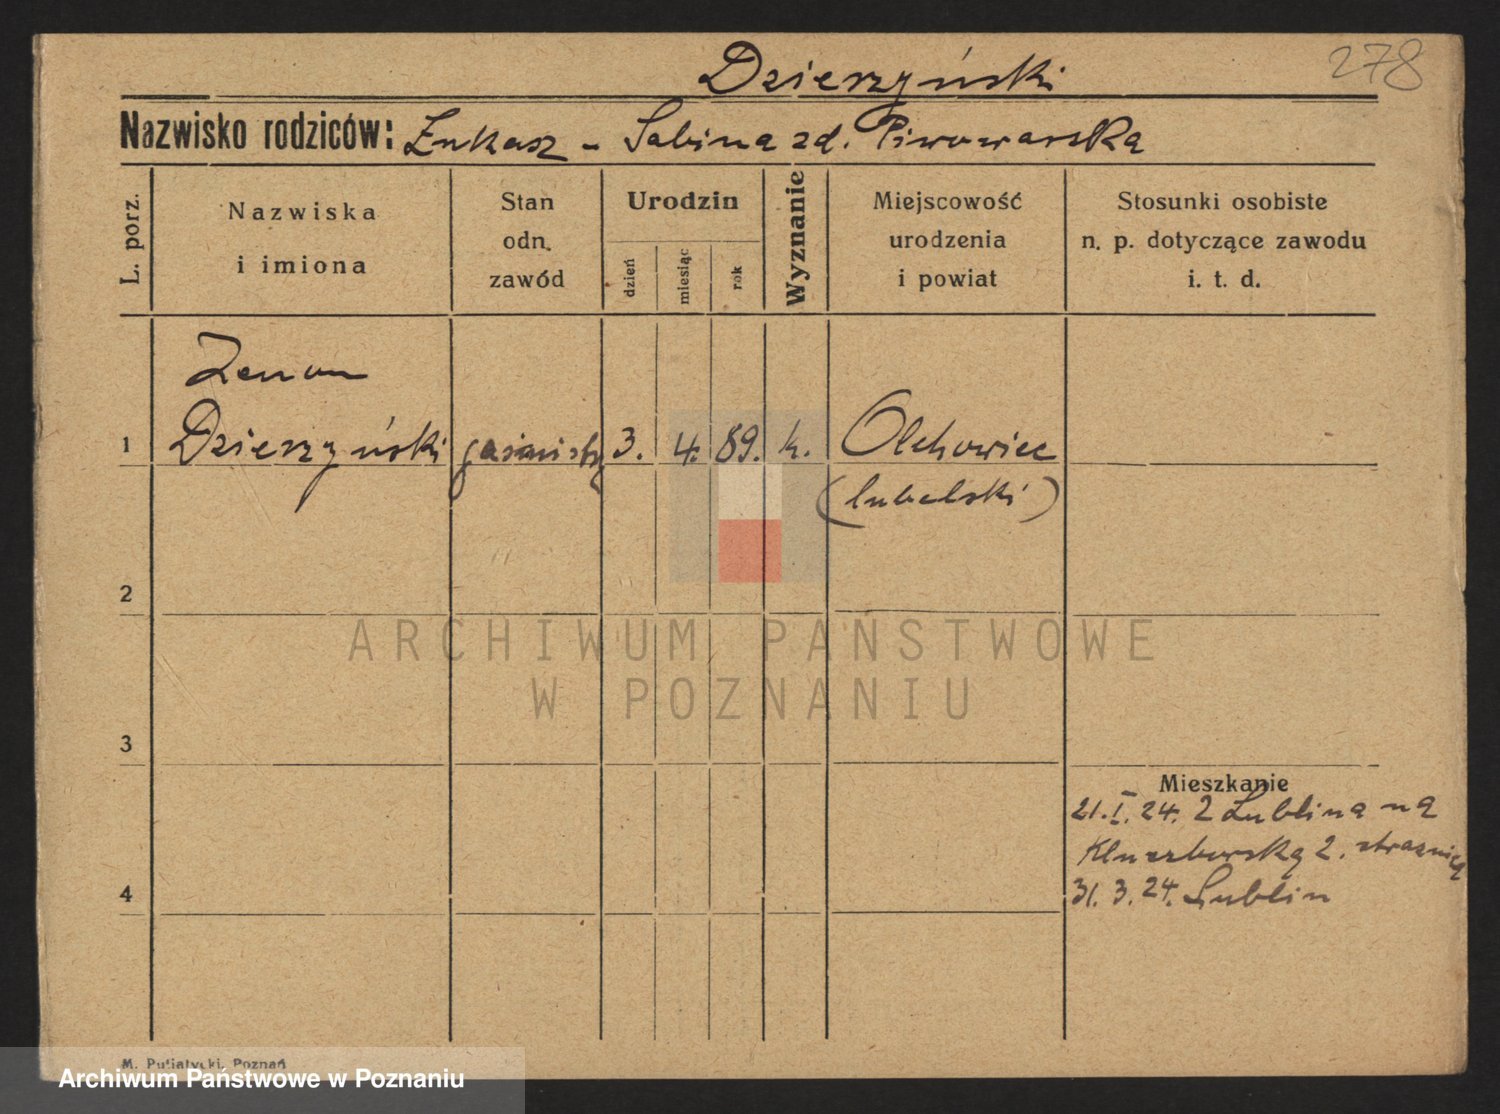 278
Dzierzyński
Nazwisko rodziców: Łukasz – Sabina zd. Piwowarska
L. porz.
Nazwiska
i imiona
Stan
odn.
zawód
Urodzin
dzień
miesiąc
rok
Wyznanie
Miejscowość
urodzenia
i powiat
Stosunki osobiste
n. p. dotyczące zawodu
i. t. d.
Zenon
1 Dzierzyński 3. 4. 89. k. Olchowiec
(lubelski)
2
ARCHIWUM PAŃSTWOWE
W POZNANIU
3
Mieszkanie
21. I. 24. z Lublina na
Kluczborską 2.
4
31. 3. 24. Lublin
M. Putiatycki, Poznań
Archiwum Państwowe w Poznaniu